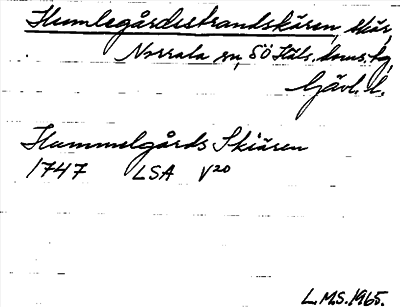 Humlegårdsstrandskären, skär,
Norrala sn, SÖ Häls. doms:kg,
Gävl. l.
Hummelgårds Skiären
1747 LSA V20
L.M.S. 1965.